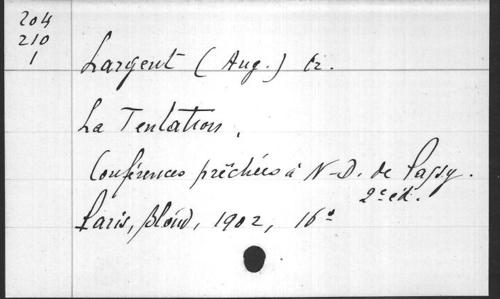 204
210
1
Largent (Aug.) Or.
La Tentation.
Conférences prêchées à N-D. de Passy.
2e éd.
Paris, Bloud, 1902, 16°